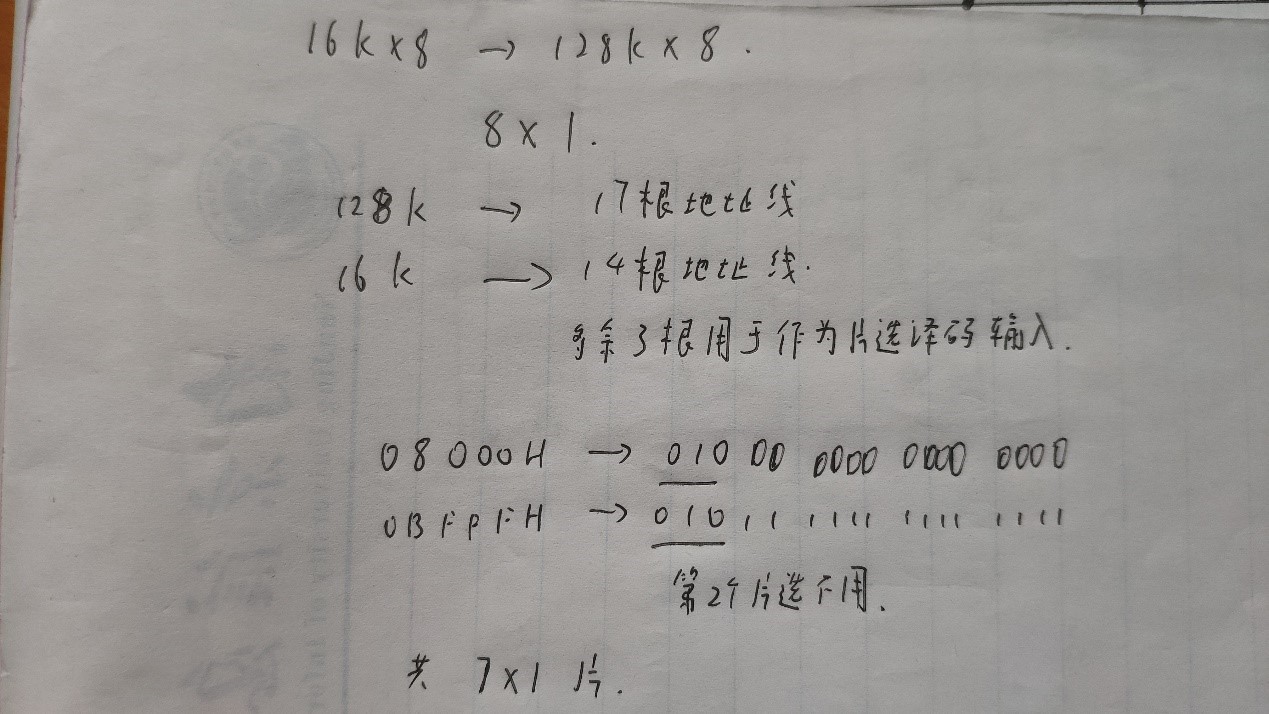 16k×8 → 128k×8.
8×1.
128k → 17根地址线
16k → 14根地址线.
多余3根用于作为片选译码输入.
08000H → 010 00 0000 0000 0000
0BFFFH → 010 11 1111 1111 1111
第2个片选不用.
共 7×1 片.